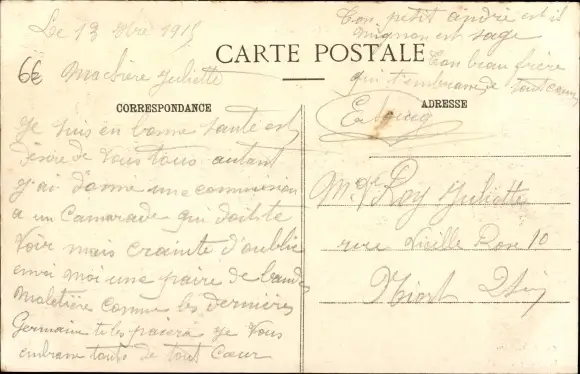 Le 13 1915
Ton petit andré est il
mignon est sage
CARTE POSTALE
6€
Ma chère Juliette
Ton beau frère
qui t'embrasse de tout cœur
CORRESPONDANCE
ADRESSE
Je suis en bonne sante est
désire de vous tous autant
J'ai donne une commission
a un Camarade qui doit te
Voir mais crainte d'oublie
envoi moi une paire de bandes
moletière comme les dernières
Germaine te les paiera Je Vous
embrasse toute de tout Cœur
Roy Juliette
rue Vieille Rose 10
Niort